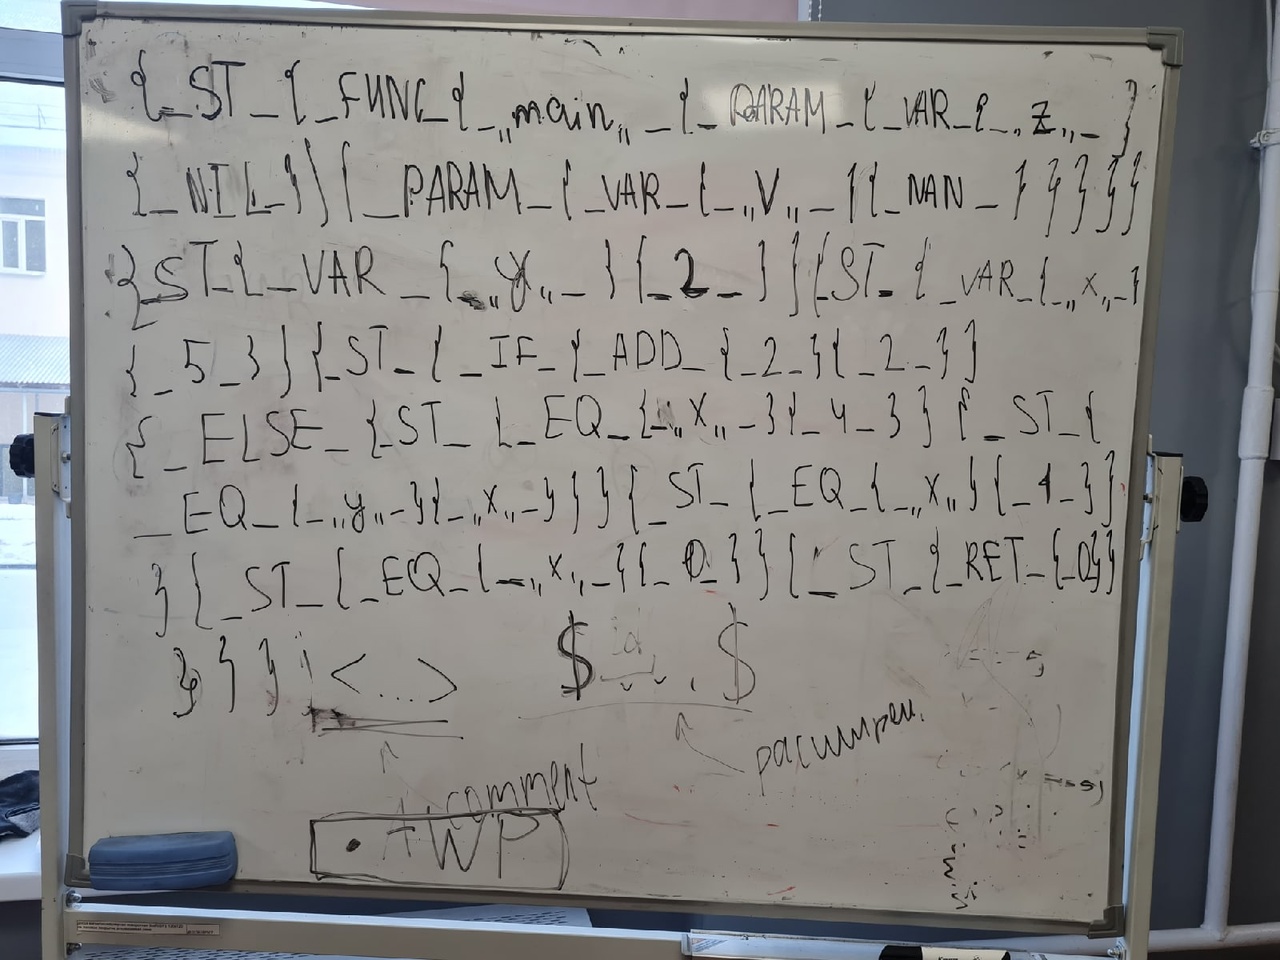 {_ST_{_FUNC_{_„main„_{_PARAM_{_VAR_{_„z„_}
{_NIL_}}{_PARAM_{_VAR_{_„V„_}{_NAN_}}}}}
{_ST_{_VAR_{_„y„_}{_2_}}{ST_{_VAR_{_„x„_}
{_5_}}{_ST_{_IF_{_ADD_{_2_}{_2_}}
{_ELSE_{ST_{_EQ_{_„x„_}{_4_}}{_ST_{
_EQ_{_„y„_}{_„x„_}}}{_ST_{_EQ_{_„x„}{_1_}}
}{_ST_{_EQ_{_„x„_}{_0_}}{_ST_{_RET_{_0}}
}}} <...> $ id $
расширен.
comment
• AWP